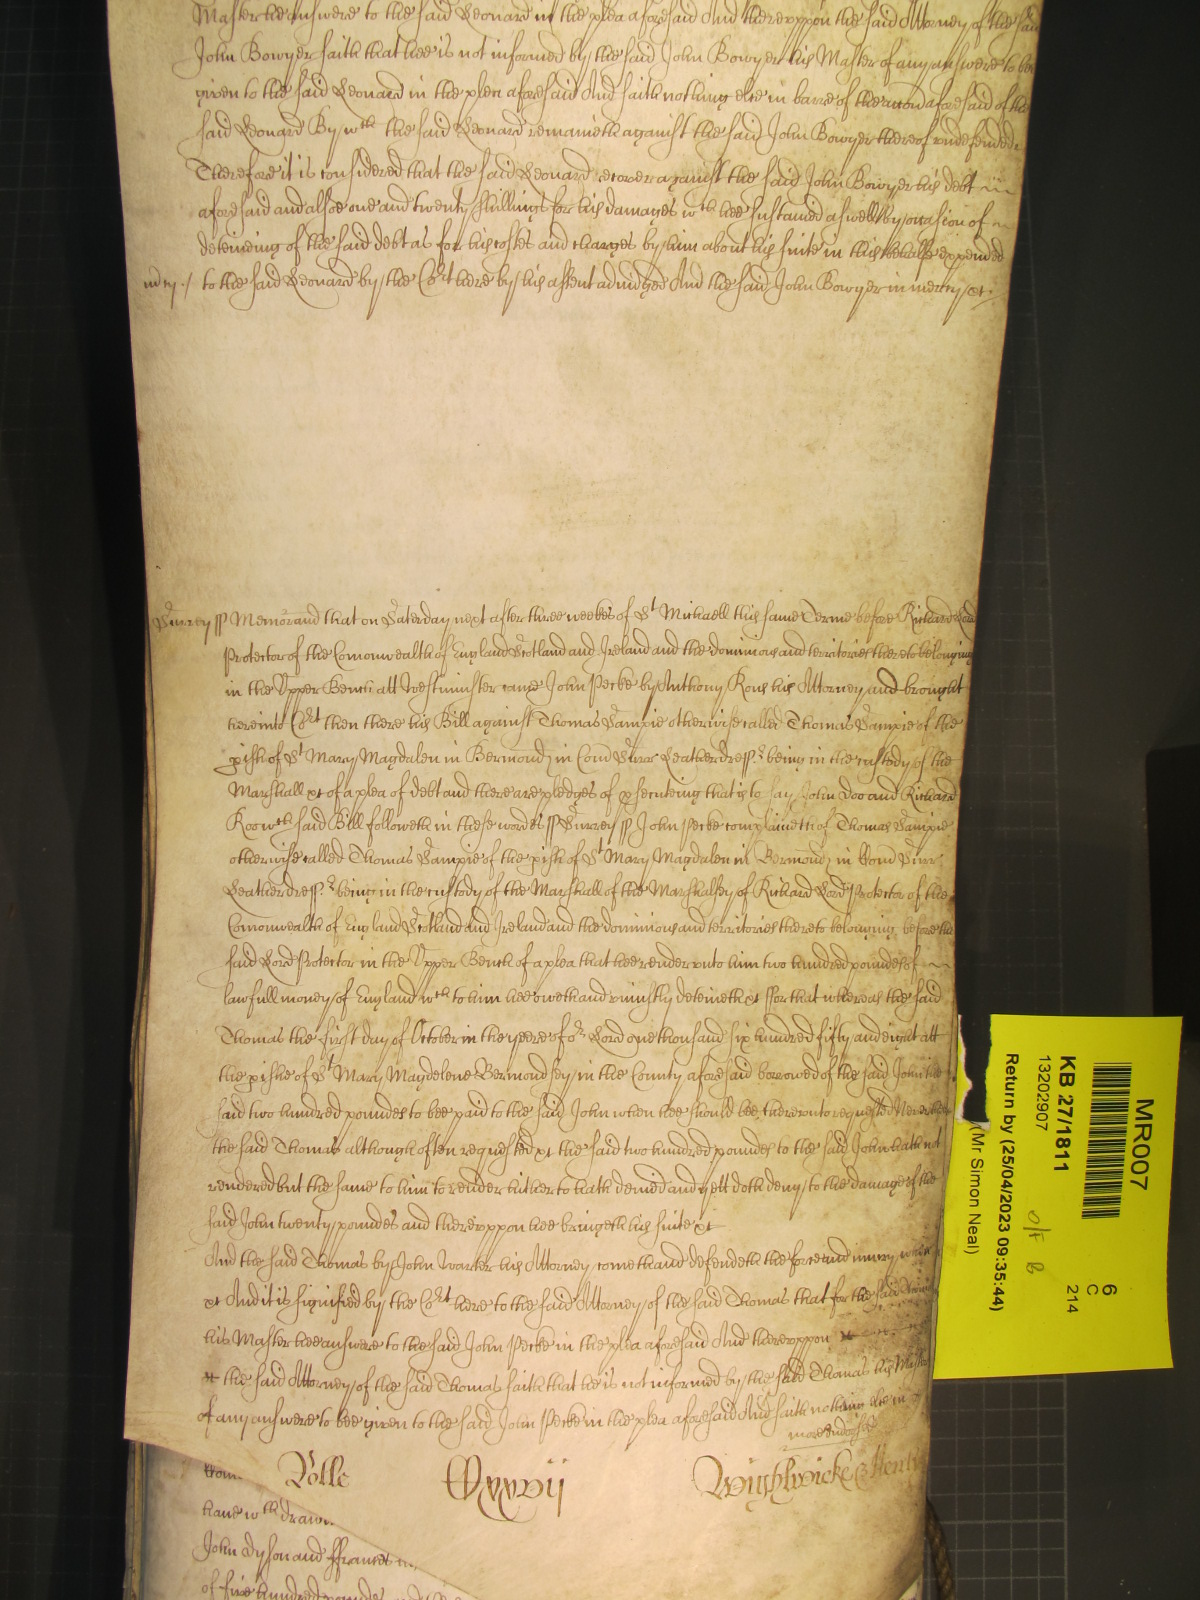 Master he answere to the said Leonard in the plea aforesaid And thereuppon the said Attorney of the said
John Bowyer saith that hee is not informed by the said John Bowyer his Master of any answere to bee
given to the said Leonard in the plea aforesaid And saith nothing else in barre of the accon aforesaid of the
said Leonard By wch the said Leonard remaineth against the said John Bowyer thereof undefended
Therefore it is considered that the said Leonard recover against the said John Bowyer his debt
aforesaid and alsoe one and twenty shillings for his damages wch hee sustained aswell by occasion of
deteineing of the said debt as for his costes and charges by him about his suite in this behalfe expended
mercy / to the said Leonard by the Cort here by his assent adiudged And the said John Bowyer in mercy &c.
Surrey ss Memorand that on Saterday next after three weekes of St Michaell this same Terme before Richard Lord
Protector of the Comonwealth of England Scotland and Ireland and the dominions and territories thereto belonging
in the Upper Bench att Westminster came John Pecke by Anthony Rous his Attorney and brought
here into Cort then there his Bill against Thomas Sampie otherwise called Thomas Sampie of the
pish of St Mary Magdalen in Bermondz in Com Surr Leatherdressr being in the custody of the
Marshall &c of a plea of debt and there are pledges of pseeuteing that is to say John Doo and Richard
Roo wch said Bill followeth in these wordes ss Surrey ss John Pecke complaineth of Thomas Sampie
otherwise called Thomas Sampie of the pish of St Mary Magdalen in Bermondz in Com Surr
Leatherdressr being in the custody of the Marshall of the Marshalsey of Richard Lord Protector of the
Comonwealth of England Scotland and Ireland and the dominions and territories thereto belonging before the
said Lord Protector in the Upper Bench of a plea that hee render unto him two hundred poundes of
lawfull money of England wch to him hee oweth and uniustly deteineth &c ffor that whereas the said
Thomas the first day of October in the yeare of or Lord one thousand six hundred fifty and eight att
the pishe of St Mary Magdelene Bermondsey in the County aforesaid borrowed of the said John the
said two hundred poundes to bee paid to the said John when hee should bee thereunto requested Neverthes
the said Thomas although often requested &c the said two hundred poundes to the said John hath not
rendered but the same to him to render hitherto hath denied and yett doth deny to the damage of the
said John twenty poundes and thereuppon hee bringeth his suite &c
And the said Thomas by John Warter his Attorney cometh and defendeth the force and iniury when
&c And it is signified by the Cort here to the said Attorney of the said Thomas that for the said Thomas
his Master hee answere to the said John Pecke in the plea aforesaid And thereuppon
the said Attorney of the said Thomas saith that he is not informed by the said Thomas his Master
of any answere to bee given to the said John Pecke in the plea aforesaid And saith nothing else in
more endorsed
Rolle Mxxvij Wightwicke & Henl
have wth drawn
John Dyson and ffrances
of five hundred poundes
MR007
KB 27/1811
13202907
Return by (25/04/2023 09:35:44)
(Mr Simon Neal)
6
C
214
O/F B